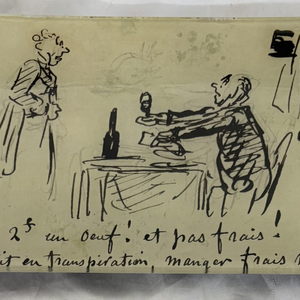 2f un oeuf! et pas frais!
it en transpiration, manger frais